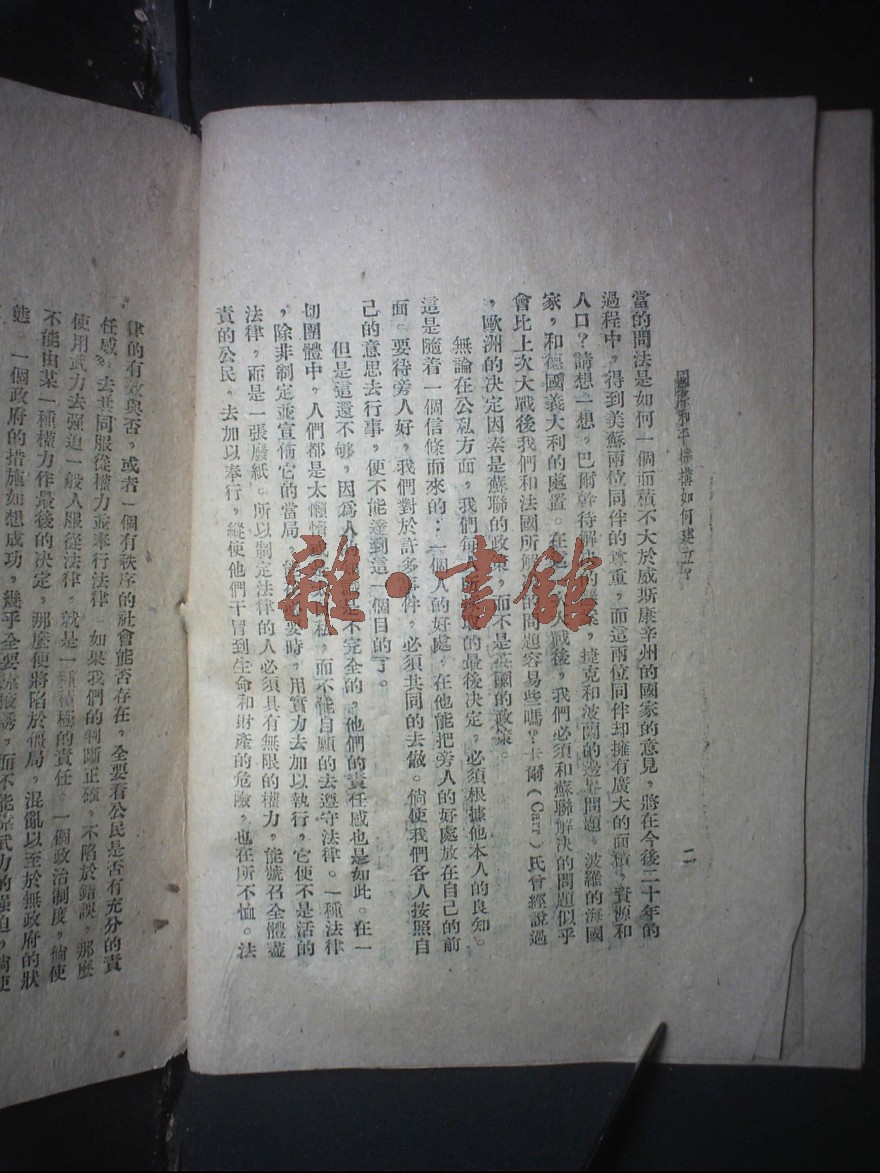 國際和平機構如何建立？
二
當的問法是如何一個面積不大於威斯康辛州的國家的意見，將在今後二十年的
過程中，得到美蘇兩位同伴的尊重，而這兩位同伴却擁有廣大的面積，資源和
人口？請想一想，巴爾幹待解決的懸案，捷克和波蘭的邊界問題，波羅的海國
家，和德國義大利的處置。在大戰後，我們必須和蘇聯解決的問題似乎
會比上次大戰後我們和法國所解的問題容易些嗎？卡爾（Carr）氏曾經說過
，歐洲的決定因素是蘇聯的政策，而不是英國的政策。
無論在公私方面，我們每的最後決定，必須根據他本人的良知。
這是隨着一個信條而來的：一個人的好處，在他能把旁人的好處放在自己的前
面。要待旁人好，我們對於許多事件，必須共同的去做。倘使我們各人按照自
己的意思去行事，便不能達到這一個目的了。
但是這還不够，因為人不完全的，他們的責任感也是如此。在一
切團體中，人們都是太懶惰私，而不能自願的去遵守法律。一種法律
，除非制定並宣佈它的當局，要時，用實力去加以執行，它便不是活的
法律，而是一張廢紙。所以制定法律的人必須具有無限的權力，能號召全體盡
責的公民，去加以奉行，縱使他們干冒到生命和財產的危險，也在所不恤。法
律的有效與否，或者一個有秩序的社會能否存在，全要看公民是否有充分的責
任感，去共同服從權力並奉行法律。如果我們的判斷正確，不陷於錯誤，那麼
使用武力去强迫一般人服從法律，就是一種積極的責任。一個政治制度，倘使
不能由某一種權力作最後的決定，那麼便將陷於僵局，混亂以至於無政府的狀
態。一個政府的措施如想成功，幾乎全要靠，而不能靠武力的强迫，倘使
雜·書舘